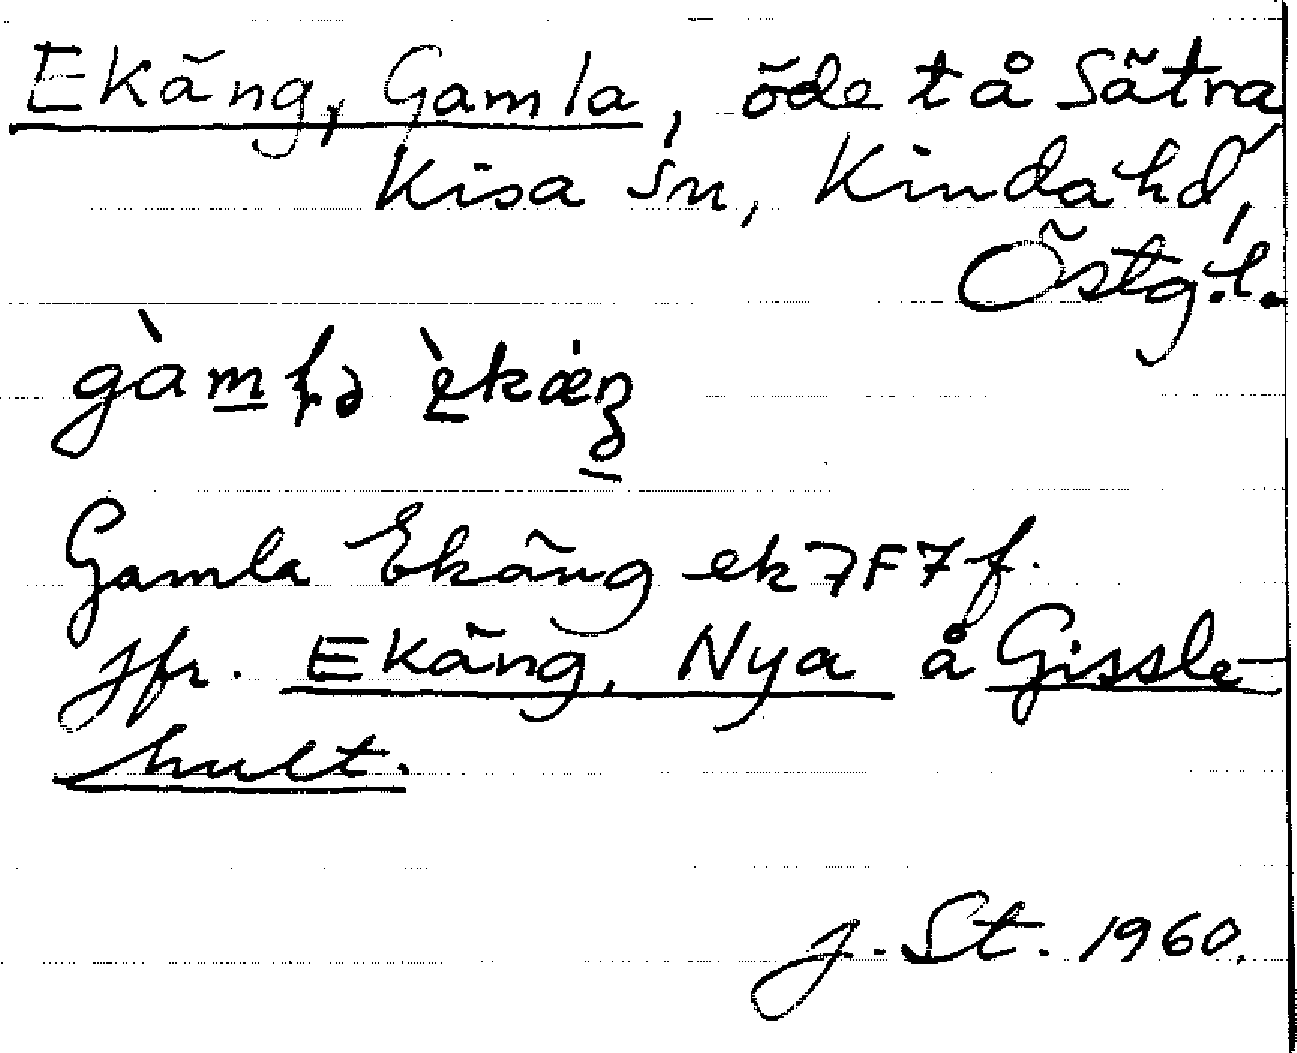 Ekäng, Gamla, öde t å Sätra,
Kisa sn, Kinda hd,
Östg.l.
Gamla Ekäng ek 7F7f.
Jfr. Ekäng, Nya å Gissle-
hult.
J. St. 1960.